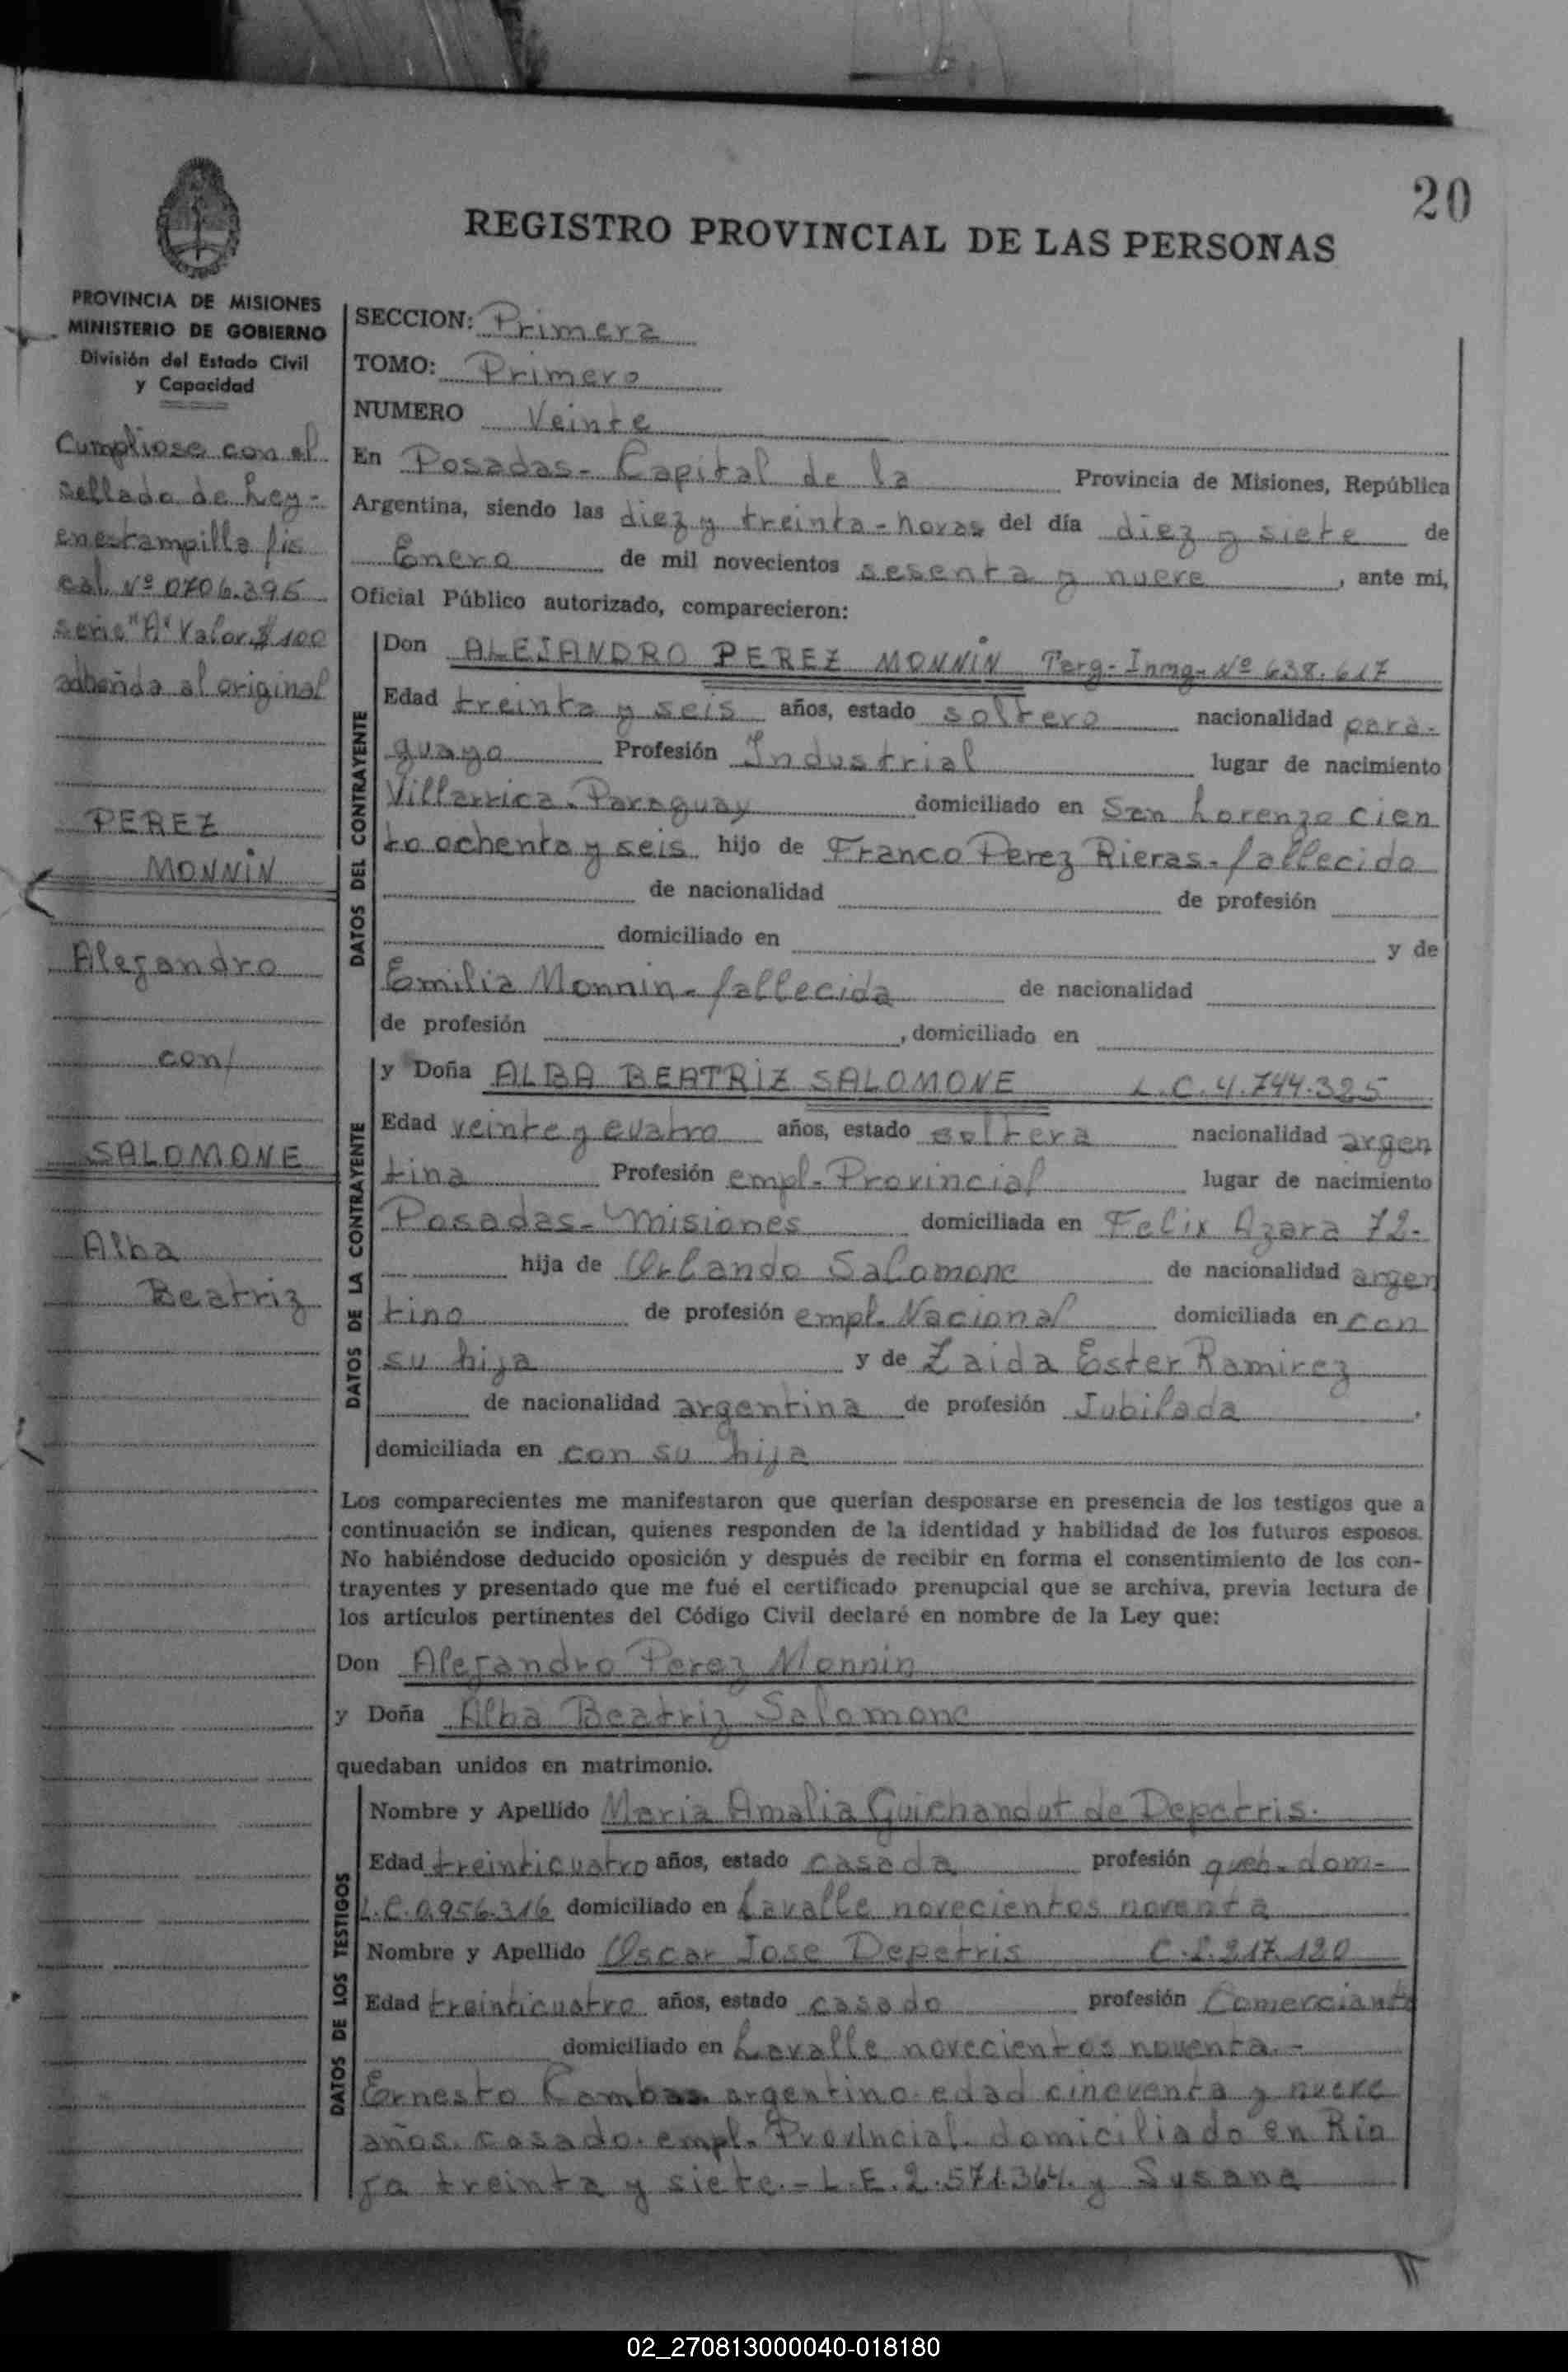 20
REGISTRO PROVINCIAL DE LAS PERSONAS
PROVINCIA DE MISIONES
MINISTERIO DE GOBIERNO
División del Estado Civil
y Capacidad
Cumpliose con el
sellado de Ley-
en estampilla fis
cal. Nº 0706.395
serie "A" Valor $ 100
adherida al original
PEREZ
MONNIN
Alejandro
con/
SALOMONE
Alba
Beatriz
SECCION: Primera
TOMO: Primero
NUMERO Veinte
En Posadas- Capital de la Provincia de Misiones, República
Argentina, siendo las diez y treinta-horas del día diez y siete de
Enero de mil novecientos sesenta y nueve, ante mi,
Oficial Público autorizado, comparecieron:
DATOS DEL CONTRAYENTE
Don ALEJANDRO PEREZ MONNIN Targ-Inmg-Nº 638.617
Edad treinta y seis años, estado soltero nacionalidad para-
guayo Profesión Industrial lugar de nacimiento
Villarrica. Paraguay domiciliado en San Lorenzo cien
to ochenta y seis hijo de Franco Perez Rieras-fallecido
de nacionalidad de profesión
domiciliado en y de
Emilia Monnin-fallecida de nacionalidad
de profesión , domiciliado en
DATOS DE LA CONTRAYENTE
y Doña ALBA BEATRIZ SALOMONE L.C.4.744.325
Edad veinte y cuatro años, estado soltera nacionalidad argen
tina Profesión empl. Provincial lugar de nacimiento
Posadas-Misiones domiciliada en Felix Azara 72.
hija de Orlando Salomone de nacionalidad argen
tino de profesión empl. Nacional domiciliada en con
su hija y de Zaida Ester Ramirez
de nacionalidad argentina de profesión Jubilada,
domiciliada en con su hija
Los comparecientes me manifestaron que querían desposarse en presencia de los testigos que a
continuación se indican, quienes responden de la identidad y habilidad de los futuros esposos.
No habiéndose deducido oposición y después de recibir en forma el consentimiento de los con-
trayentes y presentado que me fué el certificado prenupcial que se archiva, previa lectura de
los artículos pertinentes del Código Civil declaré en nombre de la Ley que:
Don Alejandro Perez Monnin
y Doña Alba Beatriz Salomone
quedaban unidos en matrimonio.
DATOS DE LOS TESTIGOS
Nombre y Apellido Maria Amalia Guichandut de Depetris.
Edad treinticuatro años, estado casada profesión queh. dom-
L.C.0.956.316 domiciliado en Lavalle novecientos noventa
Nombre y Apellido Oscar Jose Depetris C.I.217.120
Edad treinticuatro años, estado casado profesión Comerciante
domiciliado en Lavalle novecientos noventa.-
Ernesto argentino edad cincuenta y nueve
años. casado. empl. Provincial. domiciliado en Rio
ja treinta y siete.- L.E.2.571.364. y Susana
02_270813000040-018180